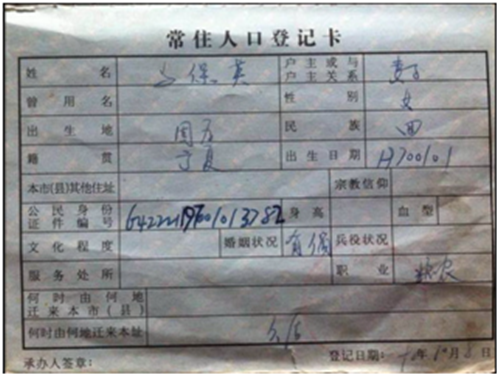 常住人口登记卡
姓名 保英 户主或与户主关系 妻子
曾用名 性别 女
出生地 固原 民族 回
籍贯 宁夏 出生日期 19700101
本市(县)其他住址 宗教信仰
公民身份证件编号 身高 血型
文化程度 婚姻状况 有偶 兵役状况
服务处所 职业 粮农
何时由何地迁来本市(县)
何时由何地迁来本址 久居
承办人签章: 登记日期: 年 月 日